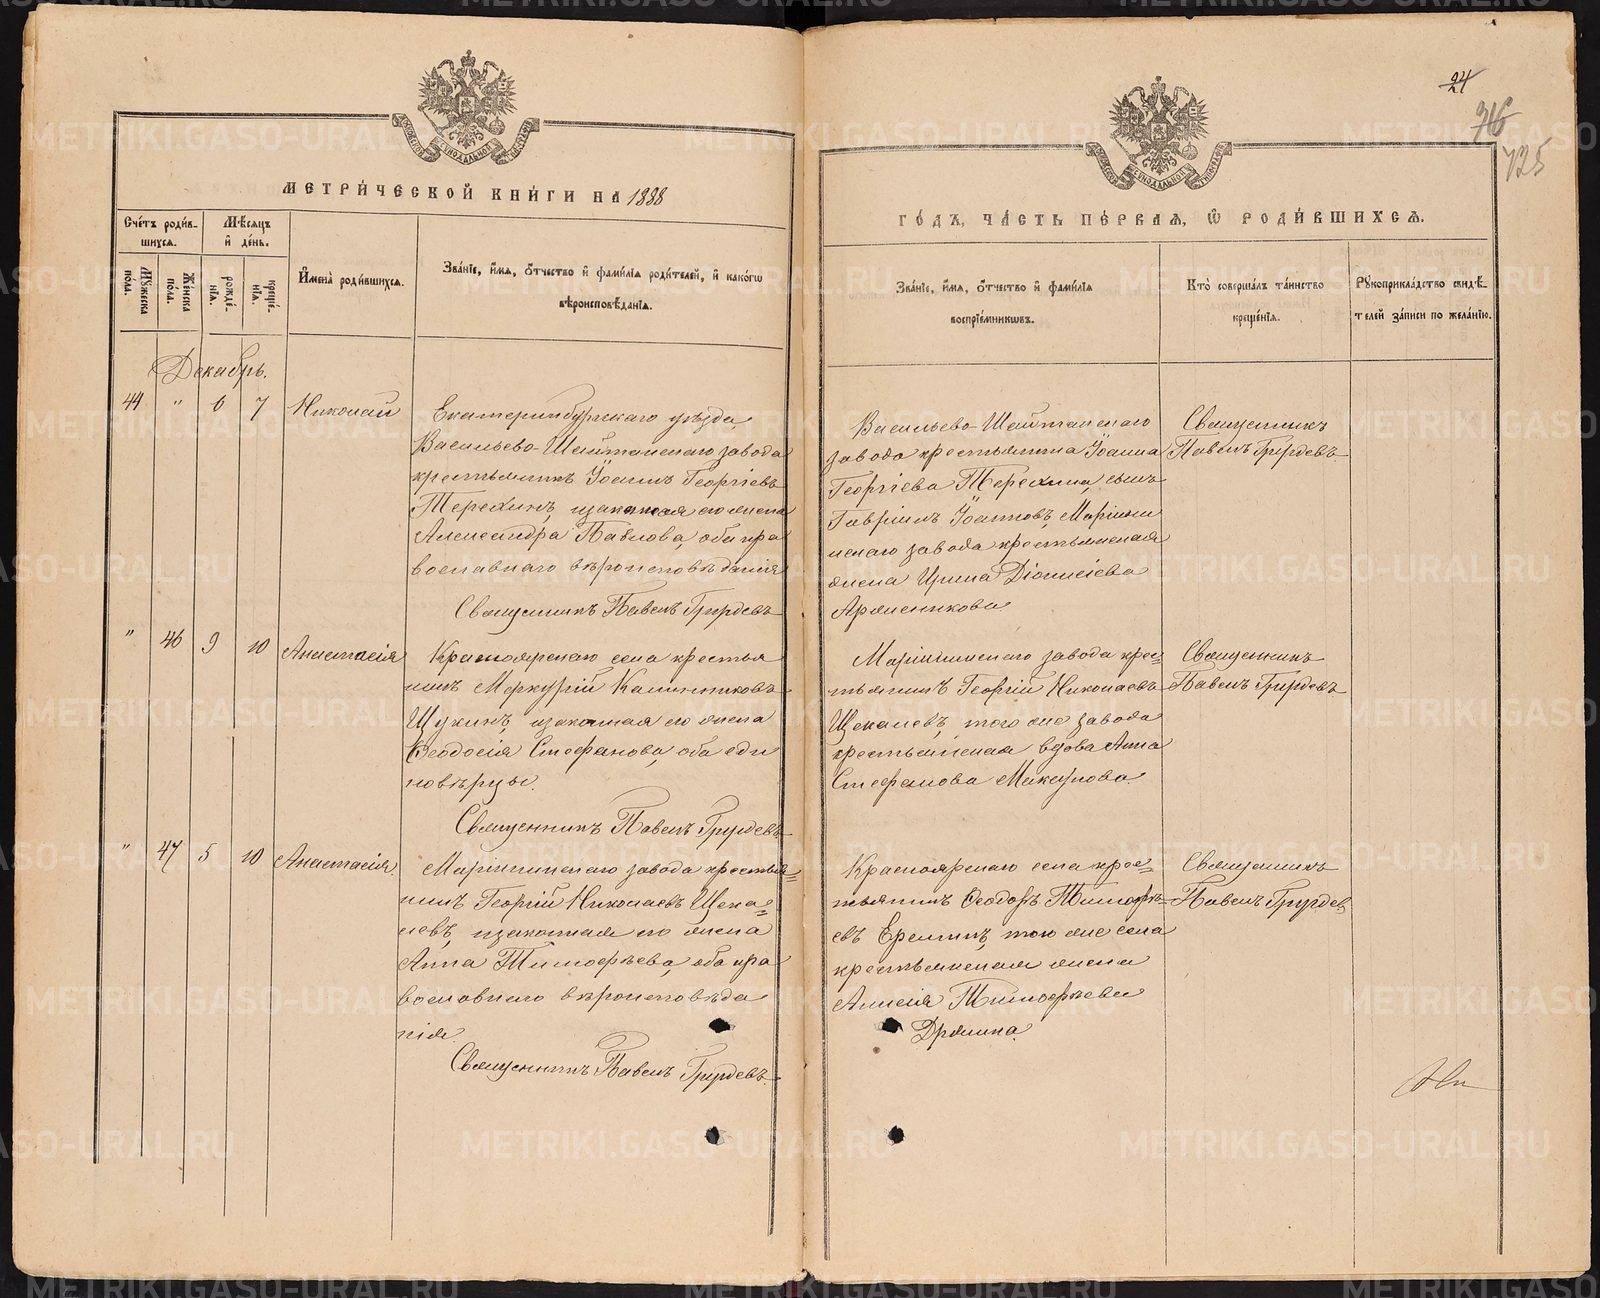 МЕТРИ́ЧЕСКОЙ КНИ́ГИ НА 1888
Сче́тъ роди́в-
шихся.
Мѣ́сяцъ
и де́нь.
Му́жеска
по́ла.
Же́нска
по́ла.
рожде́-
нїя.
креще́-
нїя.
Имена̀ роди́вшихся.
Зва́нїе, и́мя, о́тчество и фами́лїя роди́телей, и како́гѡ
вѣроисповѣ́данїя.
Декабрь.
44 " 6 7 Николай
Екатеринбургскаго уѣзда,
Васильево-Шайтанскаго завода
крестьянинъ Іоаннъ Георгіевъ
Терехинъ, и законная его жена
Александра Павлова, оба пра
вославнаго вѣроисповѣданія
Священникъ Павелъ Гурдевъ
" 46 9 10 Анастасія
Красноярскаго села крестья
нинъ Меркурій Калинниковъ
Щукинъ, и законная его жена
Ѳеодосія Стефанова, оба еди
новѣрцы.
Священникъ Павелъ Гурдевъ
" 47 5 10 Анастасія
Маріинскаго завода крестья=
нинъ Георгій Николаевъ Щека=
левъ, и законная его жена
Анна Тимофѣева, оба пра
вославнаго вѣроисповѣда
нія.
Священникъ Павелъ Гурдевъ.
24
76
125
ГО́ДЪ, ЧА́СТЬ ПЕ́РВАЯ, Ѽ РОДИ́ВШИХСЯ.
Зва́нїе, и́мя, о́тчество и фами́лїя
воспрїе́мникѡвъ.
Кто̀ соверша́лъ та́инство
креще́нїя.
Рꙋкоприкла́дство свидѣ́-
телей за́писи по жела́нїю.
Васильево-Шайтанскаго
завода крестьянина Іоанна
Георгіева Терехина, сынъ
Гавріилъ Іоанновъ, Маріин
скаго завода крестьянская
жена Ирина Діонисіева
Священникъ
Павелъ Гурдевъ
Маріинскаго завода крес=
тьянинъ Георгій Николаевъ
Щекалевъ, того же завода
крестьянская вдова Анна
Стефанова Макурова.
Священникъ
Павелъ Гурдевъ
Красноярскаго села крес=
тьянинъ Ѳеодоръ Тимофѣ=
евъ Еремин, того же села
крестьянская жена
Тимофѣева
Священникъ
Павелъ Гурдевъ